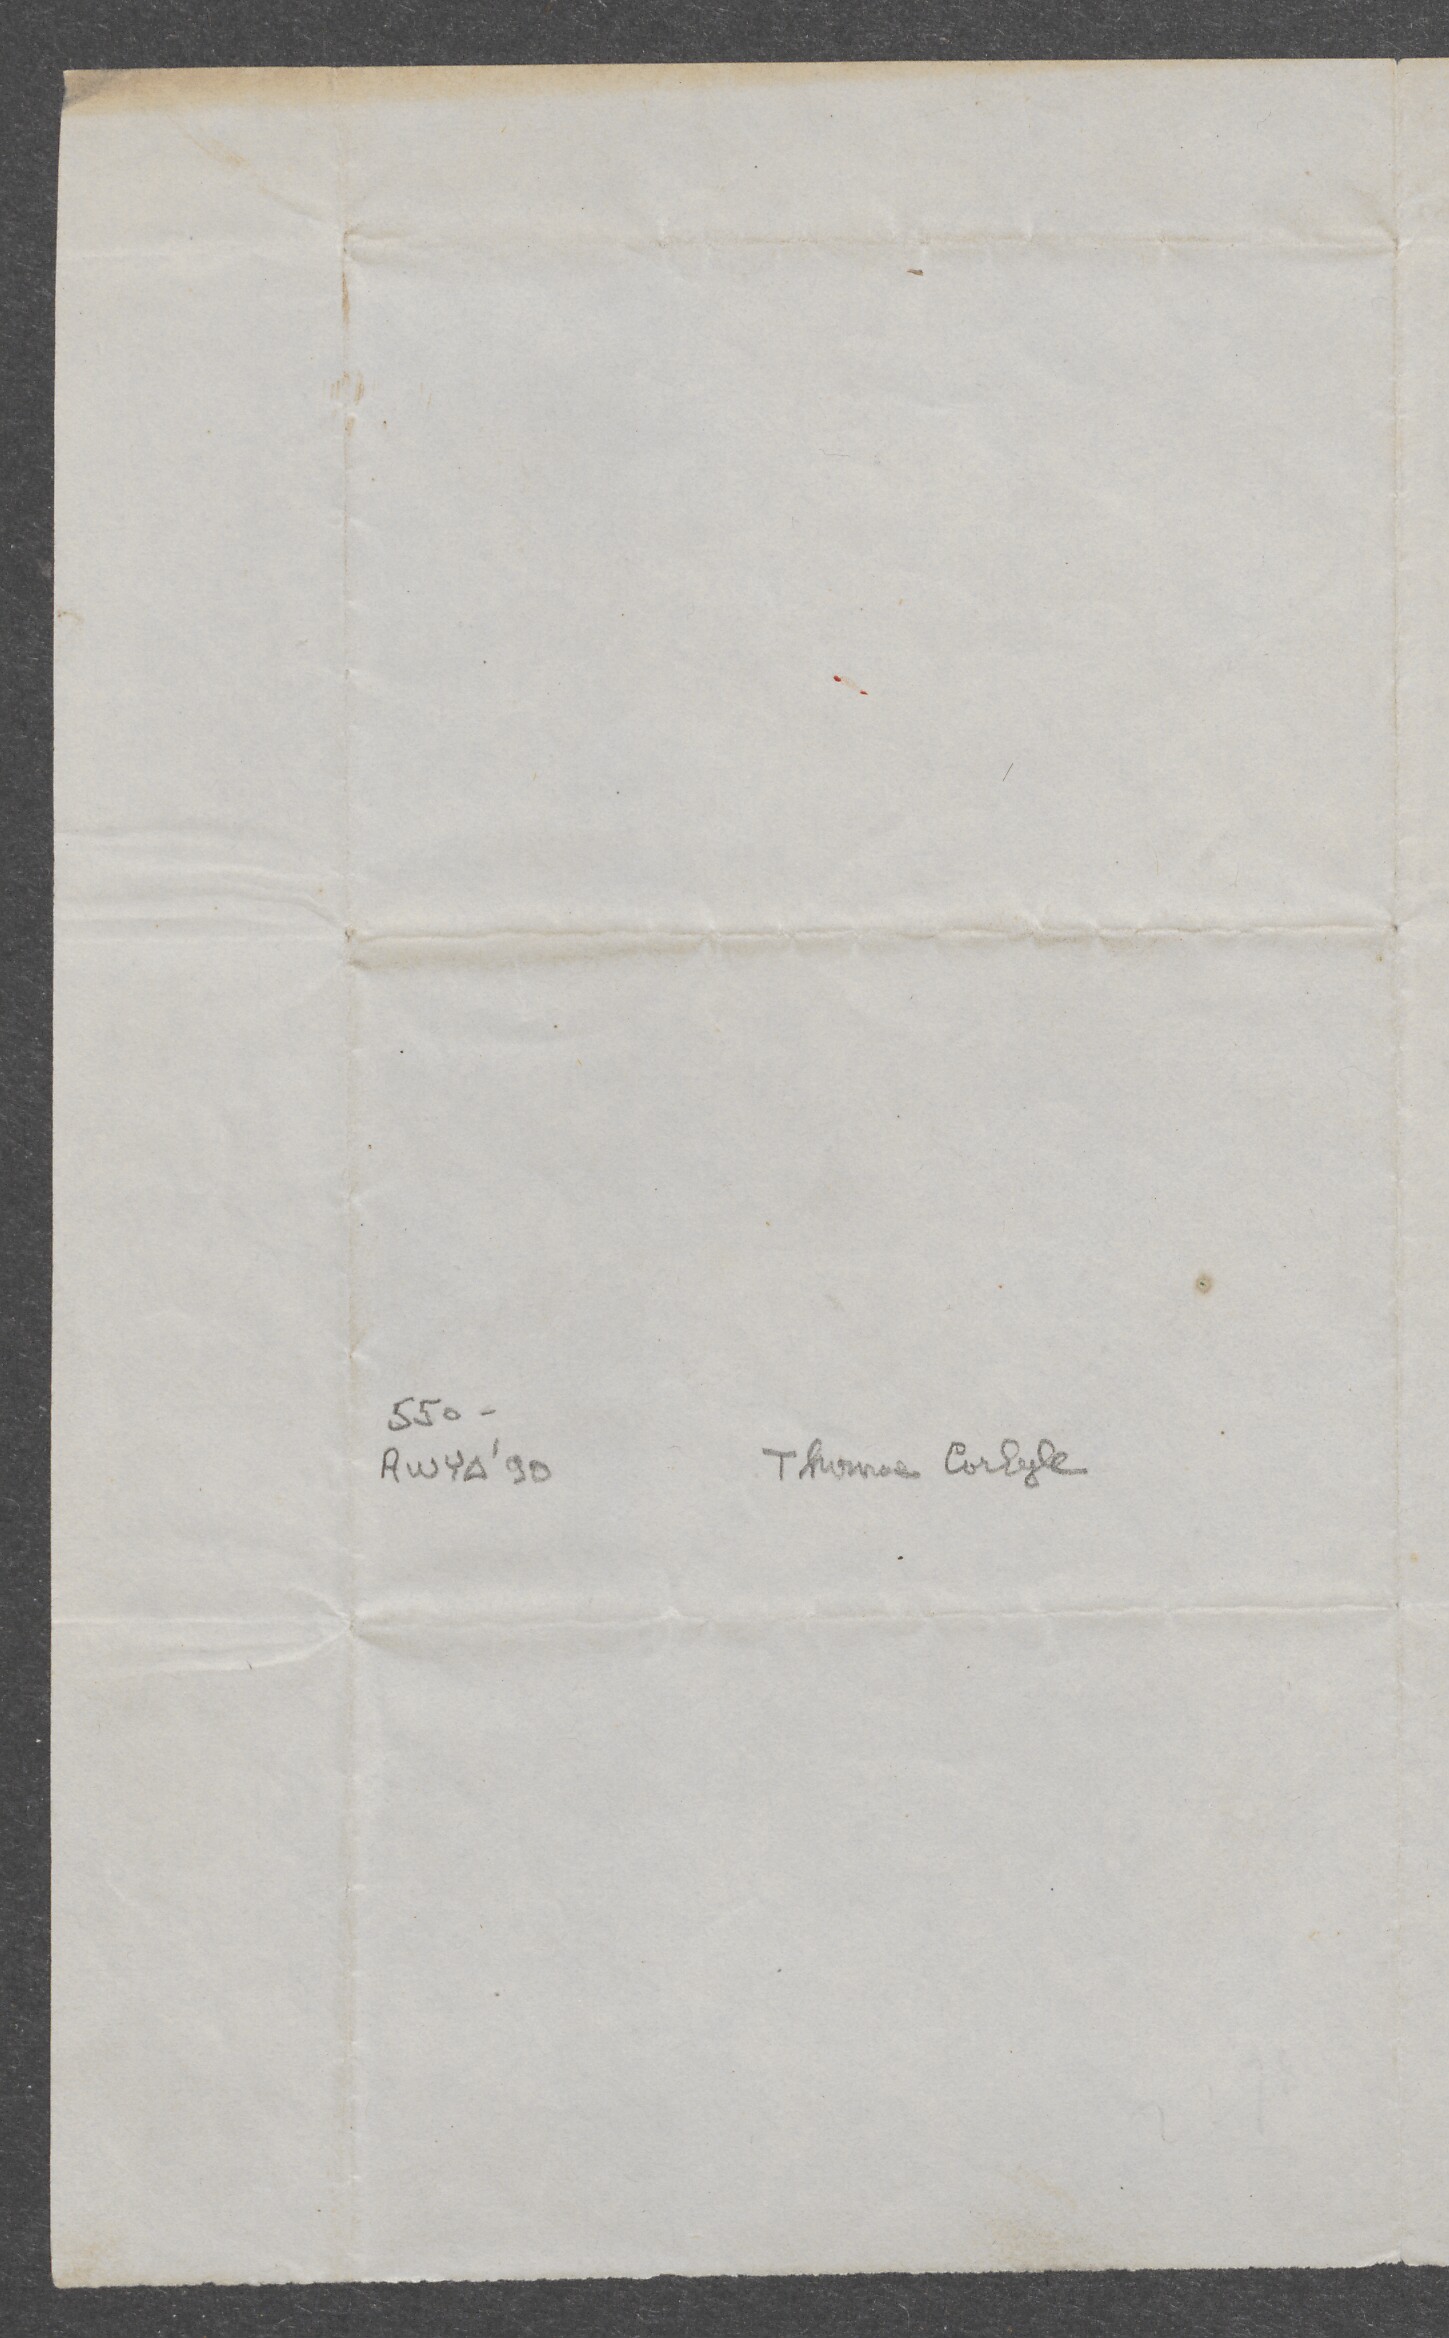 550-
AWYA'90
Thomas Carlyle